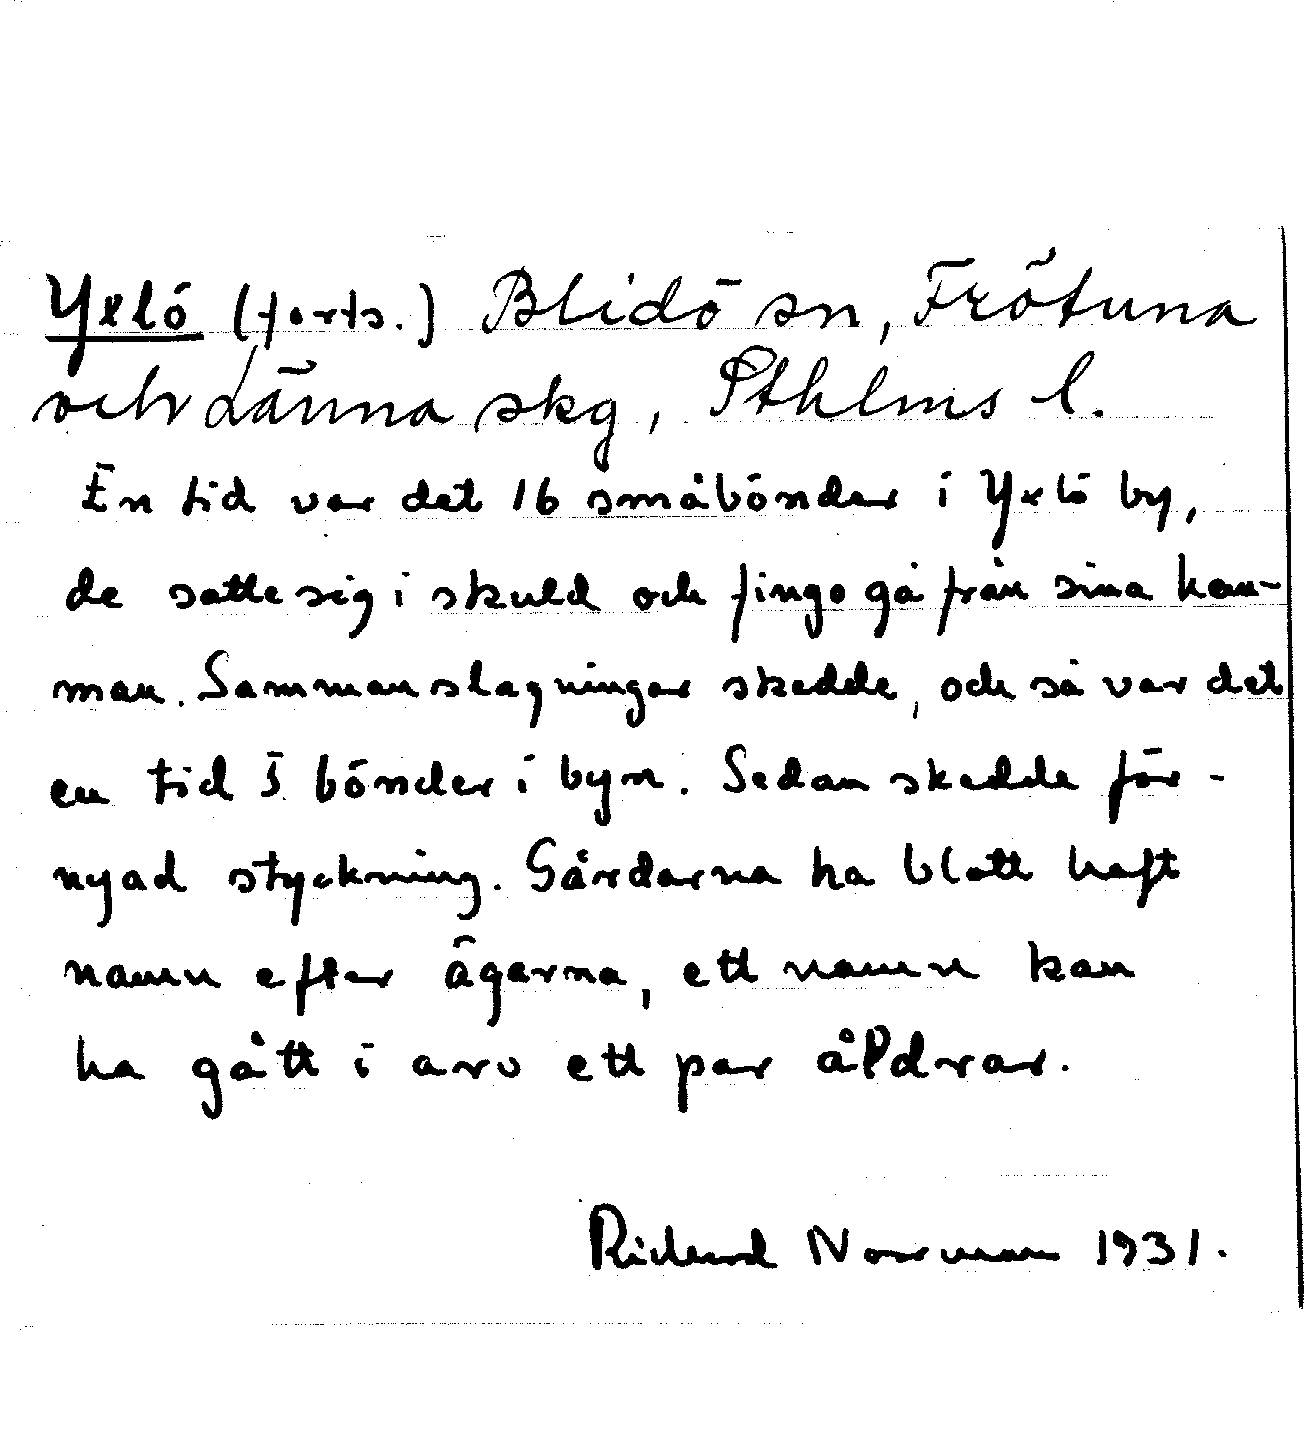 Yxlö (forts.) Blidö sn, Frötuna
och Länna skg, Sthlms l.
En tid var det 16 småbönder i Yxlö by,
de satte sig i skuld och fingo gå från sina hem-
man. Sammanslagningar skedde, och så var det
en tid 5 bönder i byn. Sedan skedde för-
nyad styckning. Gårdarna ha blott haft
namn efter ägarna, ett namn kan
ha gått i arv ett par åldrar.
Richard Norrman 1931.